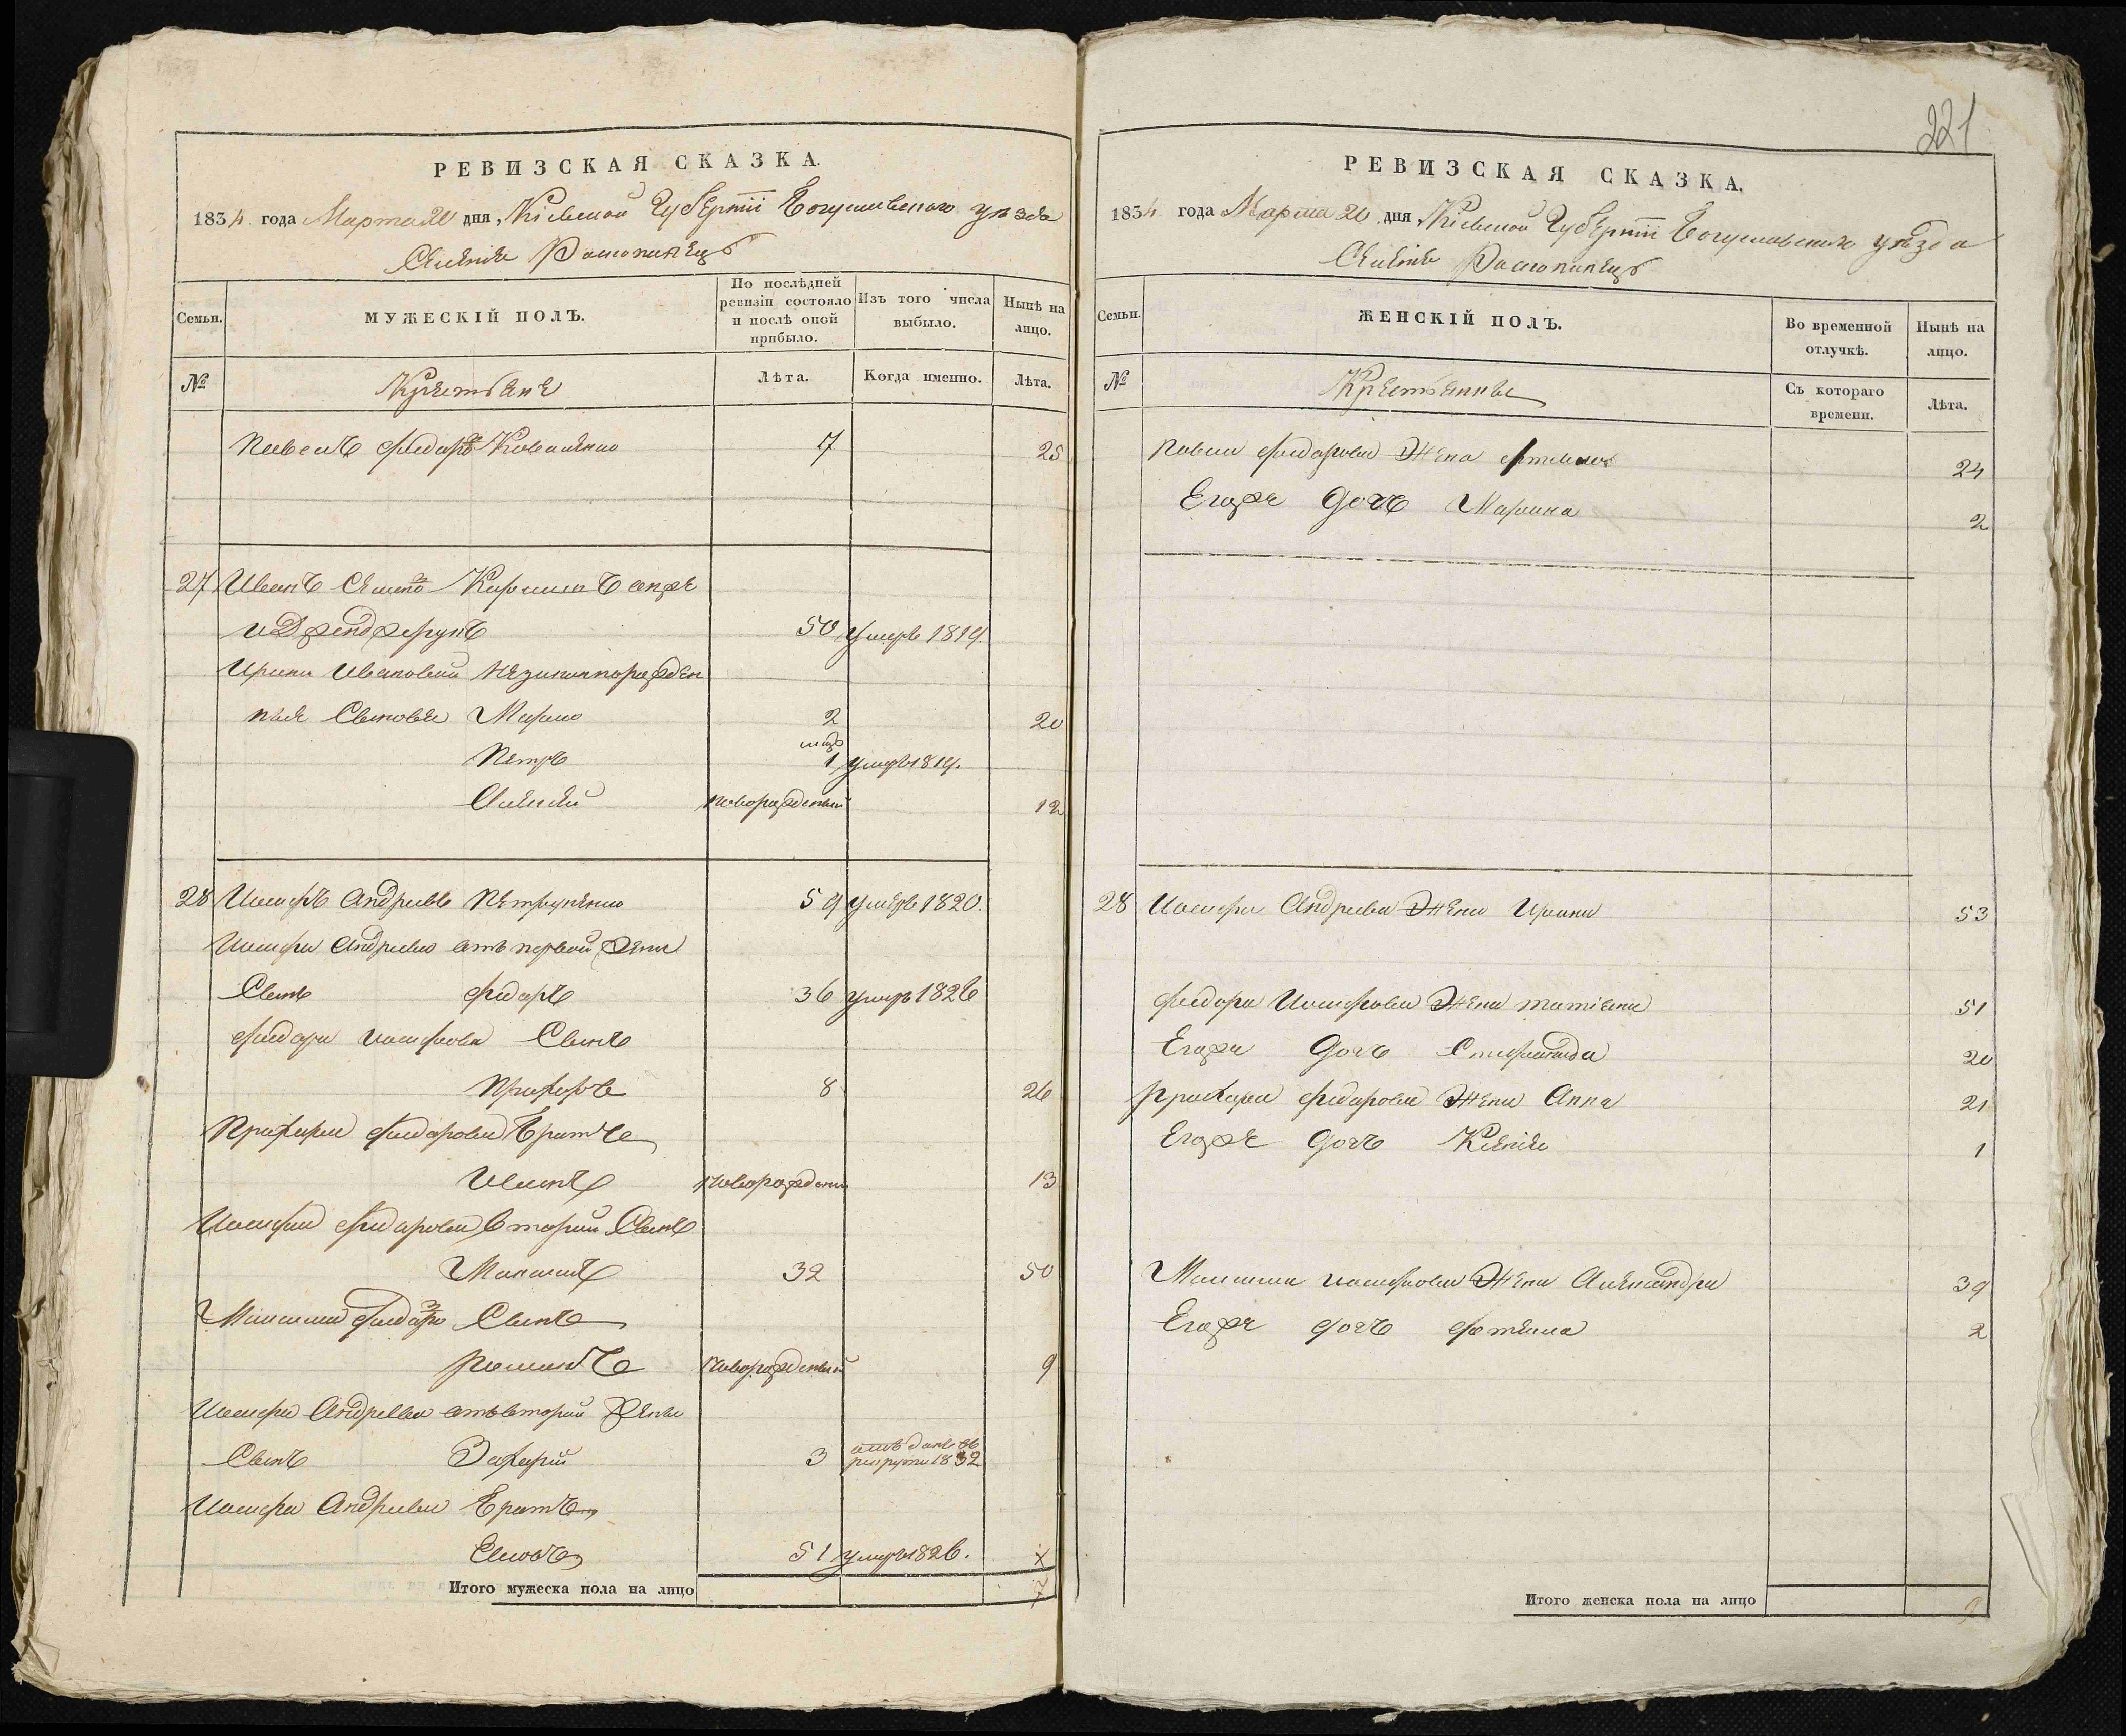 РЕВИЗСКАЯ СКАЗКА.
1834 года Марта 20 дня, Кіевской Губерніи Богуславского уѣзда
Селенія Расопинецъ
Семьи.
МУЖЕСКІЙ ПОЛЪ.
По послѣдней ревизіи состояло и послѣ оной прибыло.
Изъ того числа выбыло.
Нынѣ на лицо.
№
Крестьяне
Лѣта.
Когда именно.
Лѣта.
Павелъ Федоро Коваленко 7 25
27 Иванъ Семено
50 умеръ 1819.
Ирини Ивановой незаконнорожден
ныя Сыновья Марко 2 20
мцъ
Петръ 1 умеръ 1819.
Алексей новорожденный 12
28 Иосифъ Андреевъ Петруненко 59 умеръ 1820.
Иосифа Андреева отъ первой жены
Сынъ Федоръ 36 умеръ 1826
Федора Иосифова Сынъ
Прохоръ 8 26
Прохора Федорова Братъ
Иванъ новорожденный 13
Иосифа Федорова второй Сынъ
Максимъ 32 50
Максима Федоро Сынъ
Романъ новорожденный 9
Иосифа Андреева отъ второй жены
Сынъ Захарий 3 отданъ въ
рекруты 1832
Иосифа Андреева Братъ
51 умеръ 1826. х
Итого мужеска пола на лицо 7
221
РЕВИЗСКАЯ СКАЗКА.
1834 года Марта 20 дня, Кіевской Губерніи Богуславского уѣзда
Селенія Расопинецъ
Семьи.
ЖЕНСКІЙ ПОЛЪ.
Во временной отлучкѣ.
Нынѣ на лицо.
№
Крестьянки
Съ котораго времени.
Лѣта.
Павла Федорова Жена 24
Егоже дочъ Марина 2
28 Иосифа Андреева Жена Ирина 53
Федора Иосифова Жена Татіана 51
Егоже дочъ Стефанида 20
Прохора Федорова Жена Анна 21
Егоже дочъ Ксенія 1
Максима Иосифова Жена Александра 39
Егоже дочъ 2
Итого женска пола на лицо